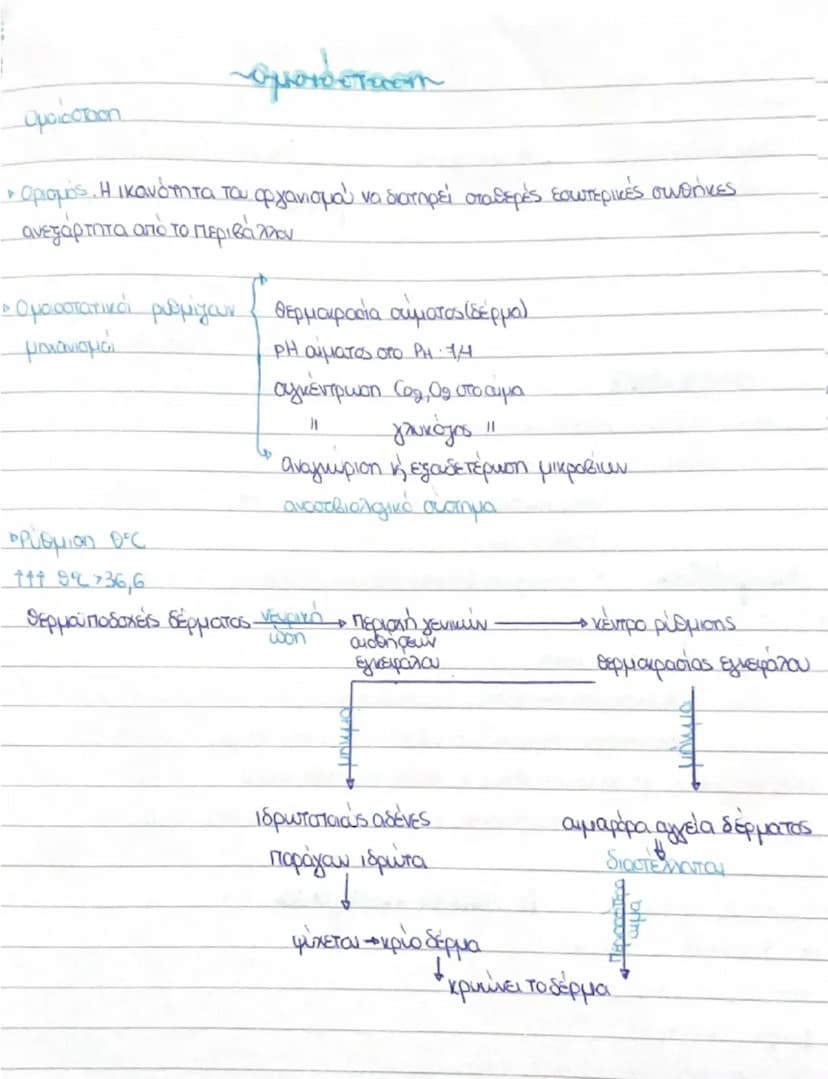 ~ομοιόσταση~
Ομοιόσταση
▹ Ορισμός. Η ικανότητα του οργανισμού να διατηρεί σταθερές εσωτερικές συνθήκες
ανεξάρτητα από το περιβάλλον
▹ Ομοιοστατικοί ρυθμίζουν
μηχανισμοί
θερμοκρασία σώματος (δέρμα)
pH αίματος στο PH: 7,4
συγκέντρωση Co2, O2 στο αίμα
" γλυκόζης "
αναγνώριση κ' εξουδετέρωση μικροβίων
ανοσοβιολογικό σύστημα
▹ Ρύθμιση θ°C
↑↑↑ θ°C > 36,6
θερμοϋποδοχείς δέρματος νευρική ώση → περιοχή γενικών → κέντρο ρύθμισης
αισθήσεων
εγκεφάλου θερμοκρασίας εγκεφάλου
μήνυμα μήνυμα
ιδρωτοποιούς αδένες αιμοφόρα αγγεία δέρματος
παράγουν ιδρώτα διαστέλλονται
περισσότερο αίμα
ψύχεται → κρύο δέρμα
κοκκινίζει το δέρμα